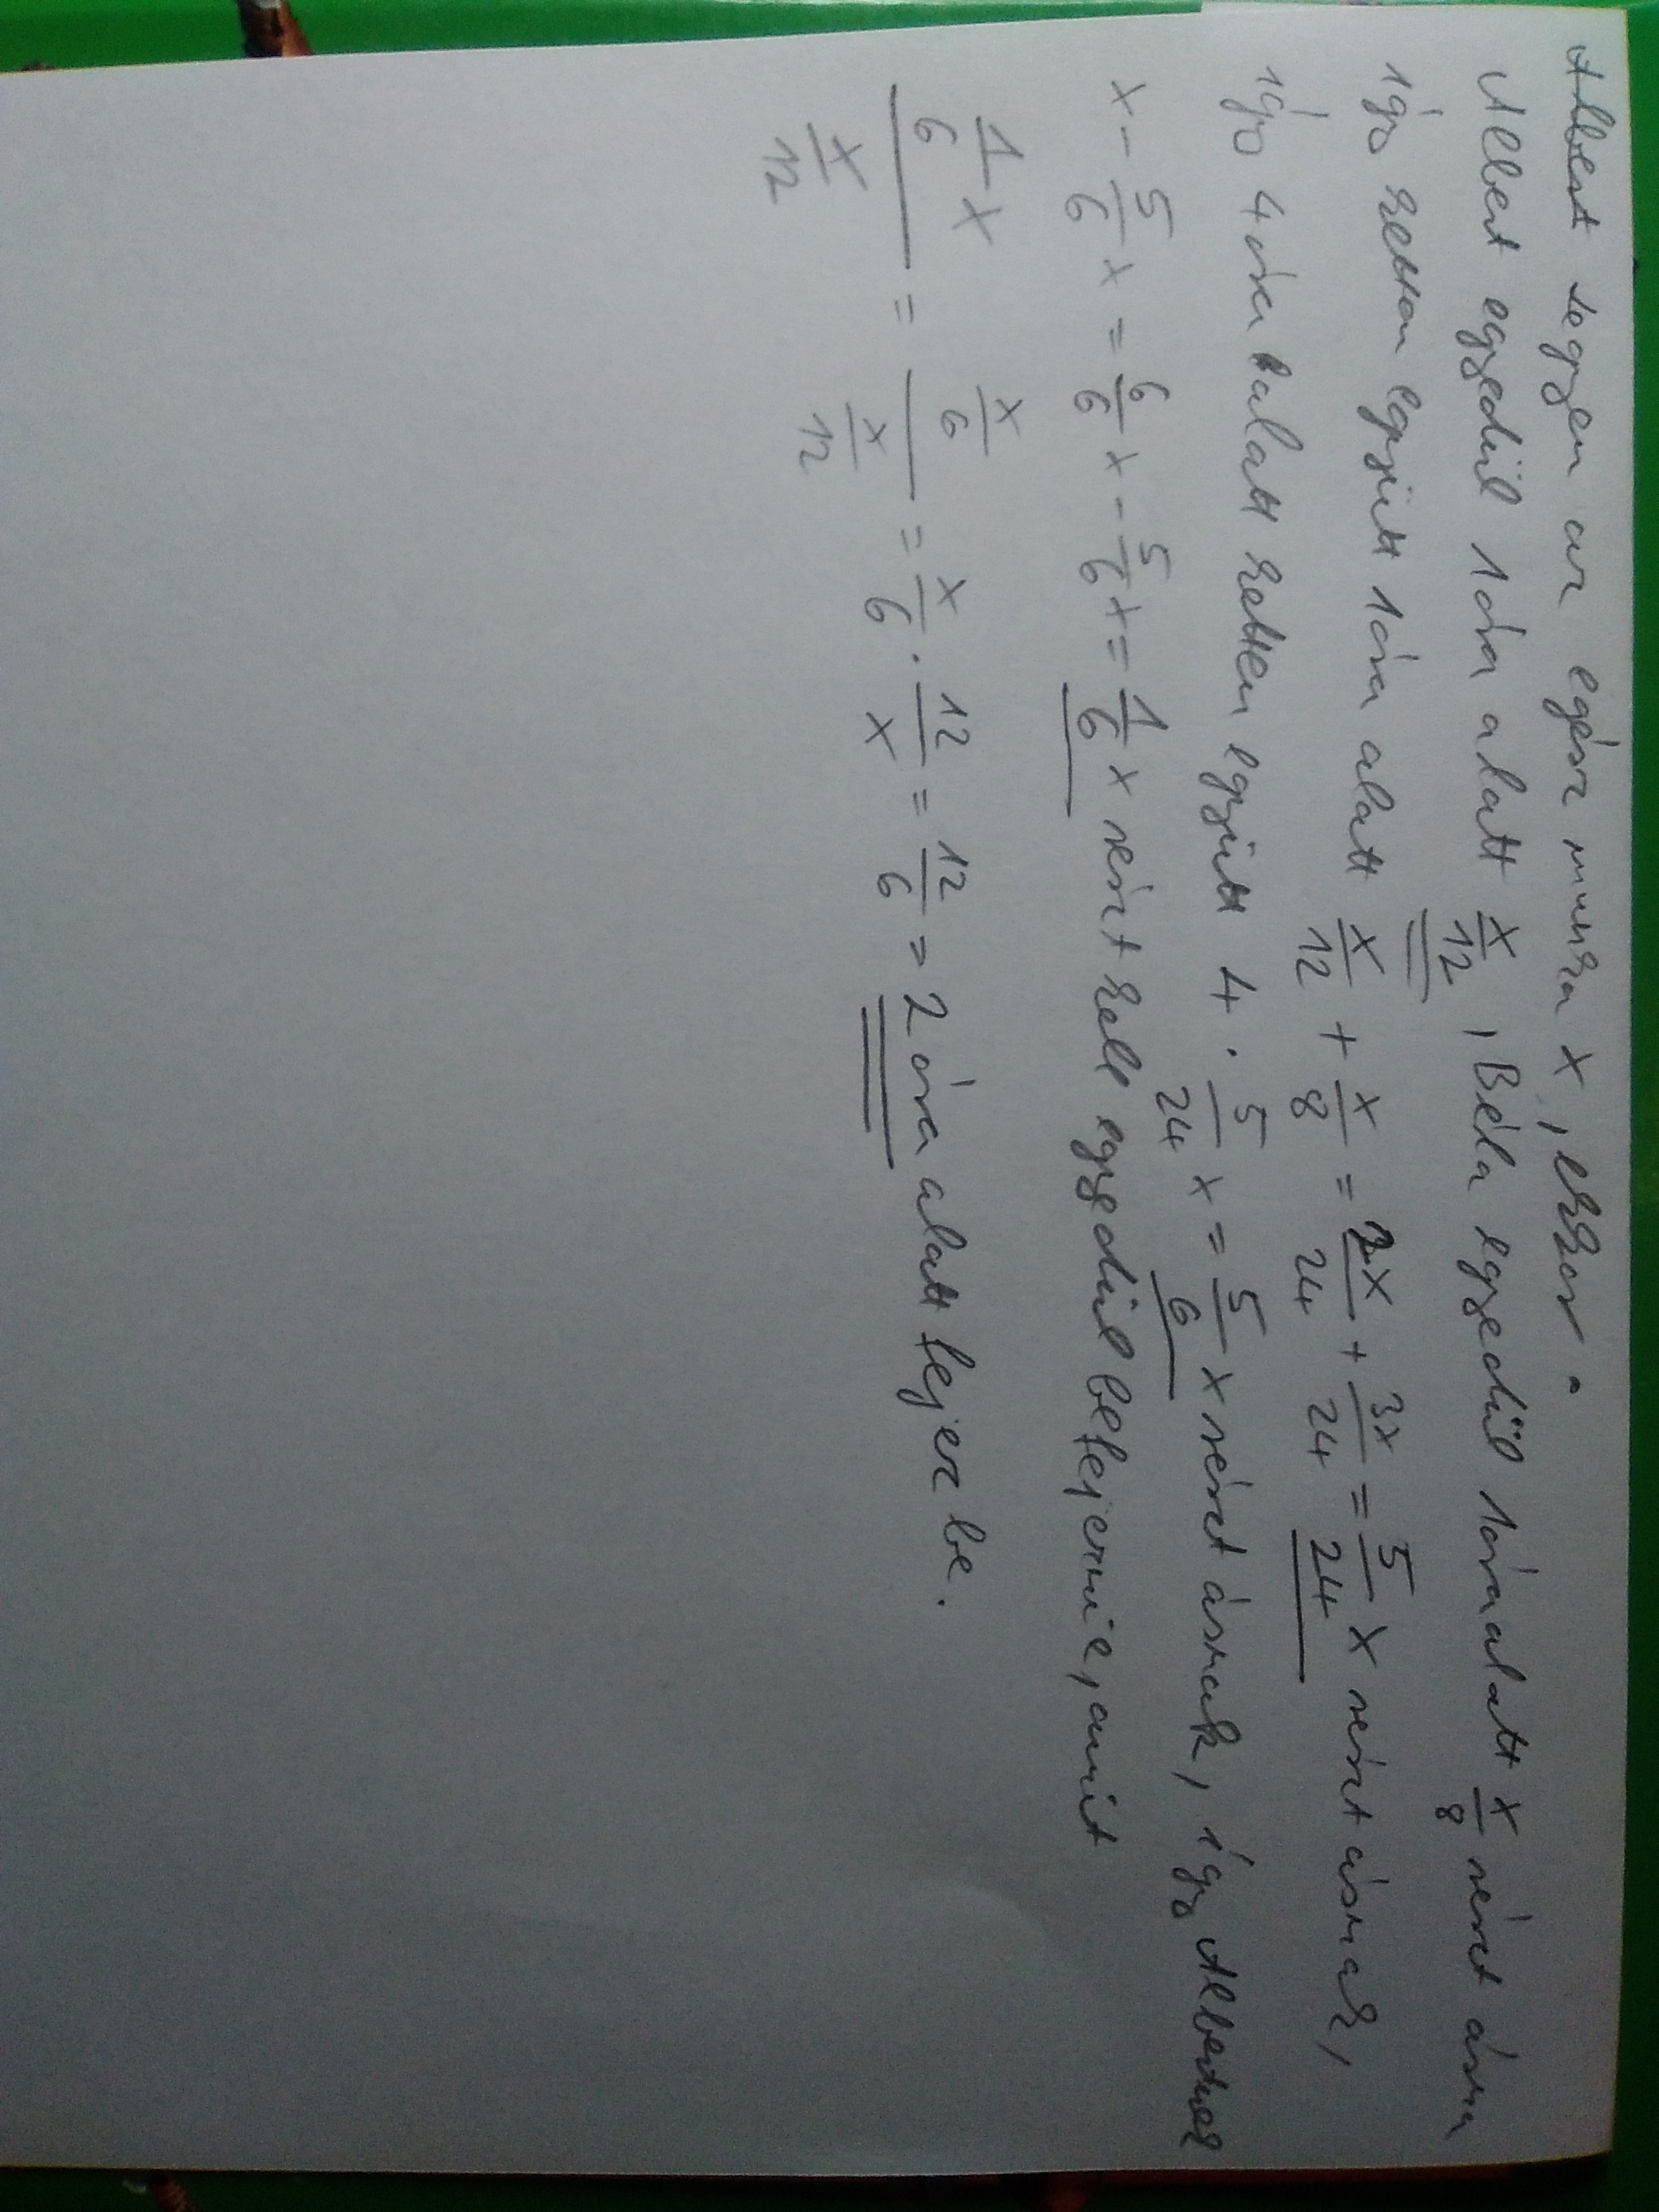 Albert legyen az egész munka x, ekkor:
Albert egyedül 1 óra alatt x/12, Béla egyedül 1 óra alatt x/8 részt ásna
így ketten együtt 1 óra alatt x/12 + x/8 = 2x/24 + 3x/24 = 5/24 x részt ásnak,
így 4 óra alatt ketten együtt 4 · 5/24 x = 5/6 x részt ásnak, így Albertnek
x - 5/6 x = 6/6 x - 5/6 x = 1/6 x részt kell egyedül befejeznie, amit
(1/6 x)/(x/12) = (x/6)/(x/12) = x/6 · 12/x = 12/6 = 2 óra alatt fejez be.